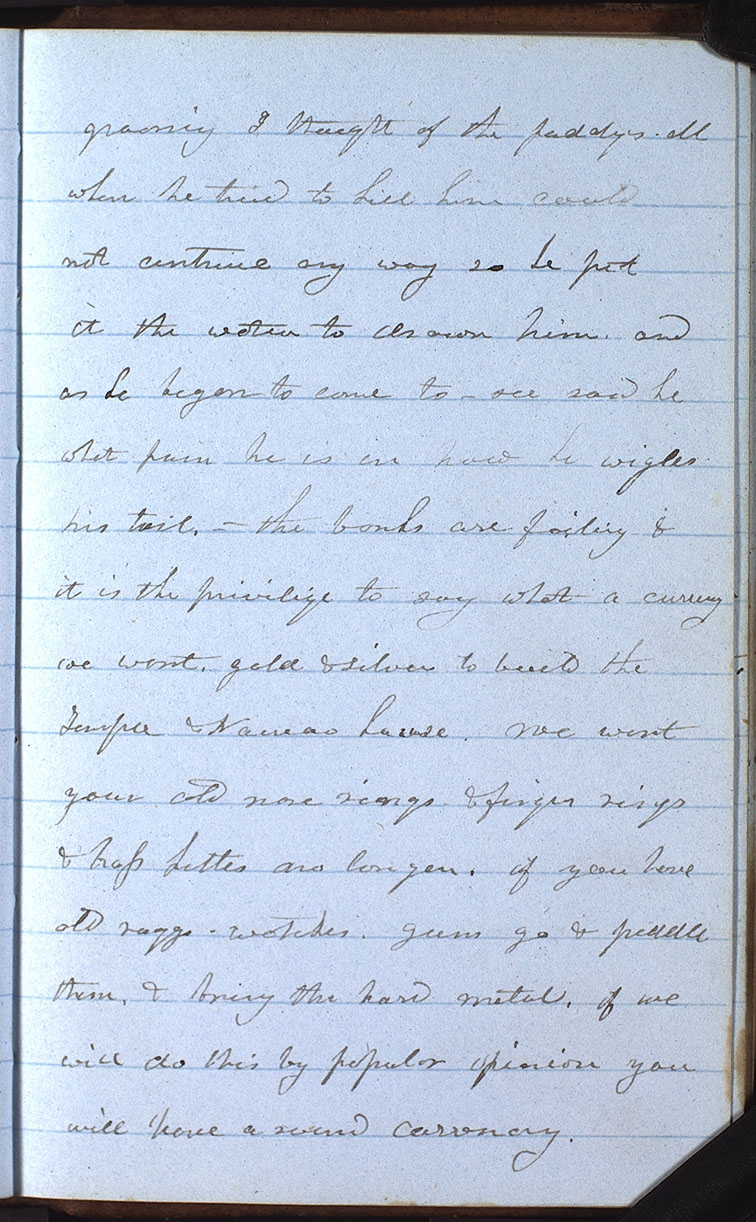 groaning I thought of the paddys. ell
when he tried to kill him could
not contrive any way so he put
it the water to drown him. and
as he began to come to - see said he
what pain he is in how he wigles
his tail. - the banks are failing &
it is the privilige to say what a currency
we want. gold & silver to build the
Temple & Nauvoo house. we want
your old nose rings & finger rings
& brass kettles no longer. if you have
old raggs. watches. guns go & peddle
them. & bring the hard metal. if we
will do this by popular opinion you
will have a sound currency.